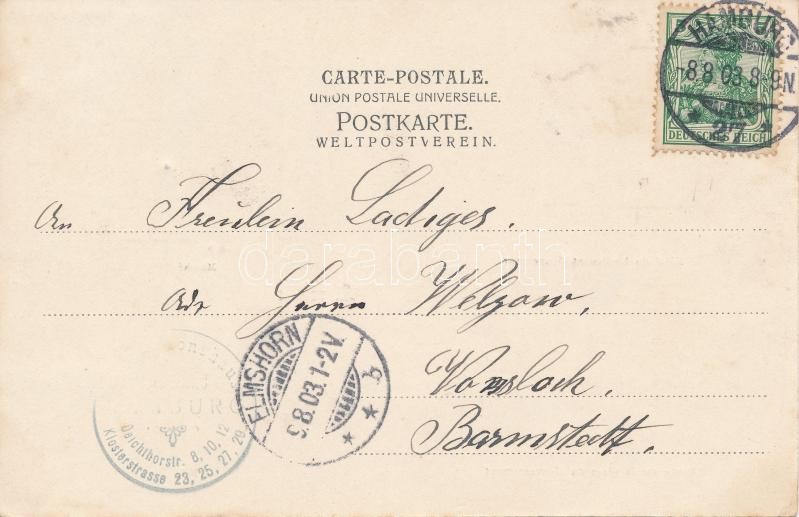 CARTE-POSTALE.
UNION POSTALE UNIVERSELLE.
POSTKARTE.
WELTPOSTVEREIN.
HAMBURG
-8.8.03.8-9N.
* 2/7 *
DEUTSCHES REICH
An Fräulein Ladiges.
Adr Herrn Welzow,
darabanth
ELMSHORN
9.8.03.1-2V.
* * b
Vossloch.
Barmstedt.
Deichthorstr. 8, 10, 12
Klosterstrasse 23, 25, 27, 29